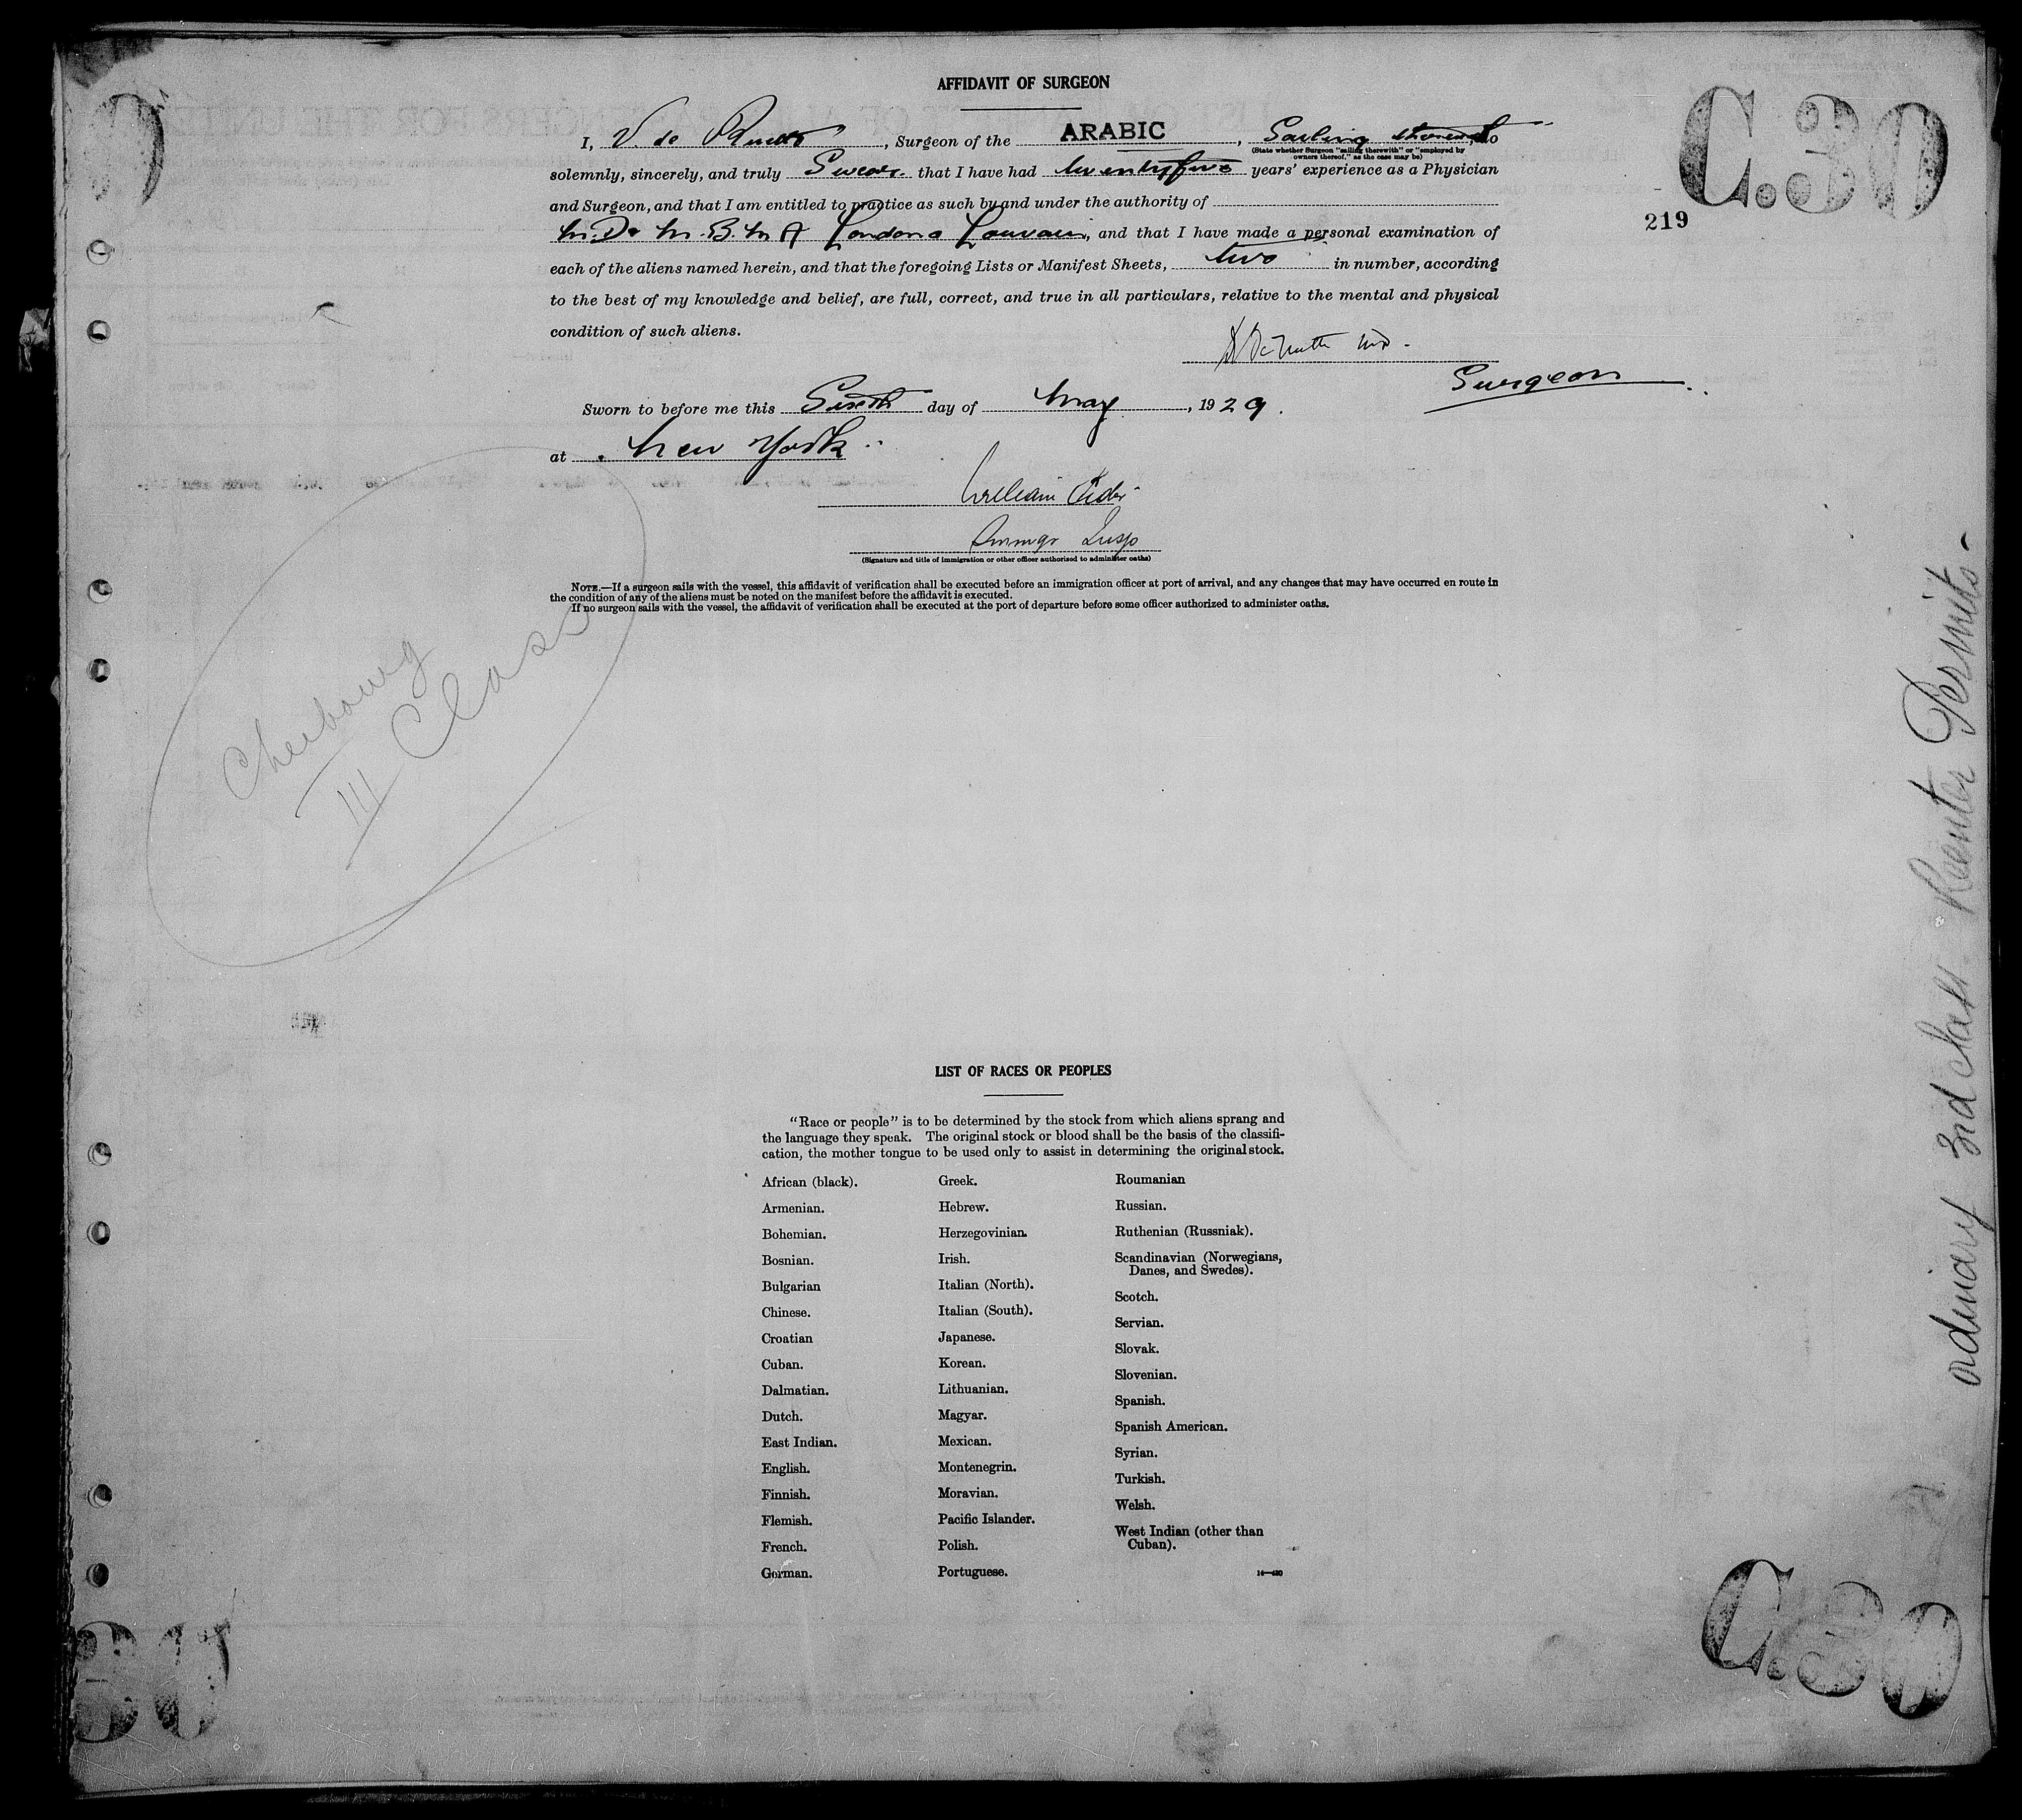 AFFIDAVIT OF SURGEON
C.30
I, V de, Surgeon of the ARABIC, Sailing therewith, do
(State whether Surgeon "sailing therewith" or "employed by
owners thereof," as the case may be)
solemnly, sincerely, and truly Swear that I have had twenty five years' experience as a Physician
and Surgeon, and that I am entitled to practice as such by and under the authority of
219
M.D. M.B. M A London & Louvain, and that I have made a personal examination of
each of the aliens named herein, and that the foregoing Lists or Manifest Sheets, two in number, according
to the best of my knowledge and belief, are full, correct, and true in all particulars, relative to the mental and physical
condition of such aliens.
MD.
Surgeon
Sworn to before me this Sixth day of May, 1929.
at New York
William
Immgr Insp
(Signature and title of immigration or other officer authorized to administer oaths)
NOTE.—If a surgeon sails with the vessel, this affidavit of verification shall be executed before an immigration officer at port of arrival, and any changes that may have occurred en route in
the condition of any of the aliens must be noted on the manifest before the affidavit is executed.
If no surgeon sails with the vessel, the affidavit of verification shall be executed at the port of departure before some officer authorized to administer oaths.
Cherbourg
III Class
ordinary 3rd class Reenter Permits-
LIST OF RACES OR PEOPLES
"Race or people" is to be determined by the stock from which aliens sprang and
the language they speak. The original stock or blood shall be the basis of the classifi-
cation, the mother tongue to be used only to assist in determining the original stock.
African (black).
Armenian.
Bohemian.
Bosnian.
Bulgarian
Chinese.
Croatian
Cuban.
Dalmatian.
Dutch.
East Indian.
English.
Finnish.
Flemish.
French.
German.
Greek.
Hebrew.
Herzegovinian.
Irish.
Italian (North).
Italian (South).
Japanese.
Korean.
Lithuanian.
Magyar.
Mexican.
Montenegrin.
Moravian.
Pacific Islander.
Polish.
Portuguese.
Roumanian
Russian.
Ruthenian (Russniak).
Scandinavian (Norwegians,
Danes, and Swedes).
Scotch.
Servian.
Slovak.
Slovenian.
Spanish.
Spanish American.
Syrian.
Turkish.
Welsh.
West Indian (other than
Cuban).
30
C.30